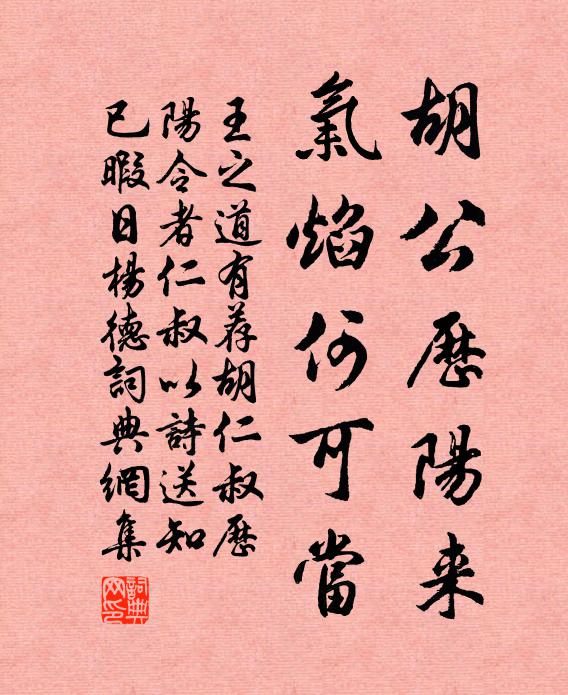 胡公歷陽来
氣焰何可當
王之道有荐胡仁叔歷
陽令者仁叔以詩送知
已暇日楊德詞典網集
詞典网印